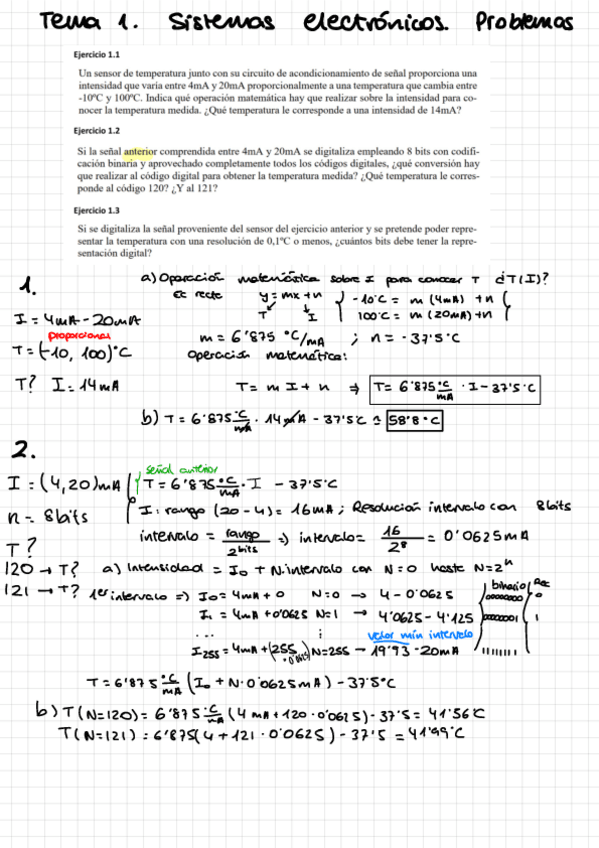 Tema 1. Sistemas electrónicos. Problemas
Ejercicio 1.1
Un sensor de temperatura junto con su circuito de acondicionamiento de señal proporciona una
intensidad que varia entre 4mA y 20mA proporcionalmente a una temperatura que cambia entre
-10ºC y 100ºC. Indica qué operación matemática hay que realizar sobre la intensidad para co-
nocer la temperatura medida. ¿Qué temperatura le corresponde a una intensidad de 14mA?
Ejercicio 1.2
Si la señal anterior comprendida entre 4mA y 20mA se digitaliza empleando 8 bits con codifi-
cación binaria y aprovechado completamente todos los códigos digitales, ¿qué conversión hay
que realizar al código digital para obtener la temperatura medida? ¿Qué temperatura le corres-
ponde al código 120? ¿Y al 121?
Ejercicio 1.3
Si se digitaliza la señal proveniente del sensor del ejercicio anterior y se pretende poder repre-
sentar la temperatura con una resolución de 0,1ºC o menos, ¿cuántos bits debe tener la repre-
sentación digital?
1.
a) Operación matemática sobre I para conocer T ¿T(I)?
Ec recta y = mx + n
T I
-10°C = m (4mA) + n
100°C = m (20mA) + n
I = 4mA - 20mA
proporcional
T = (-10, 100)°C
m = 6'875 °C/mA ; n = -37'5°C
Operación matemática:
T? I = 14mA
T = m I + n ⇒ T = 6'875 °C/mA · I - 37'5°C
b) T = 6'875 °C/mA · 14mA - 37'5°C ≃ 58'8°C
2.
señal anterior
I = (4,20)mA
T = 6'875 °C/mA · I - 37'5°C
n = 8bits
I: rango (20-4) = 16mA; Resolución intervalo con 8bits
T?
intervalo = rango/2^bits ⇒ intervalo = 16/2^8 = 0'0625mA
120 → T? a) Intensidad = I0 + N·intervalo con N=0 hasta N=2^n
121 → T? 1er intervalo ⇒ I0 = 4mA + 0 N=0 → 4 - 0'0625
binario
00000000 0
I1 = 4mA + 0'0625 N=1 → 4'0625 - 4'125 00000001 1
... ⋮ valor min intervalo
I255 = 4mA + (255·0'0625) N=255 → 19'93 - 20mA 11111111
T = 6'875 °C/mA (I0 + N·0'0625mA) - 37'5°C
b) T(N=120) = 6'875 °C/mA (4mA + 120·0'0625) - 37'5 = 41'56°C
T(N=121) = 6'875(4 + 121·0'0625) - 37'5 = 41'99°C